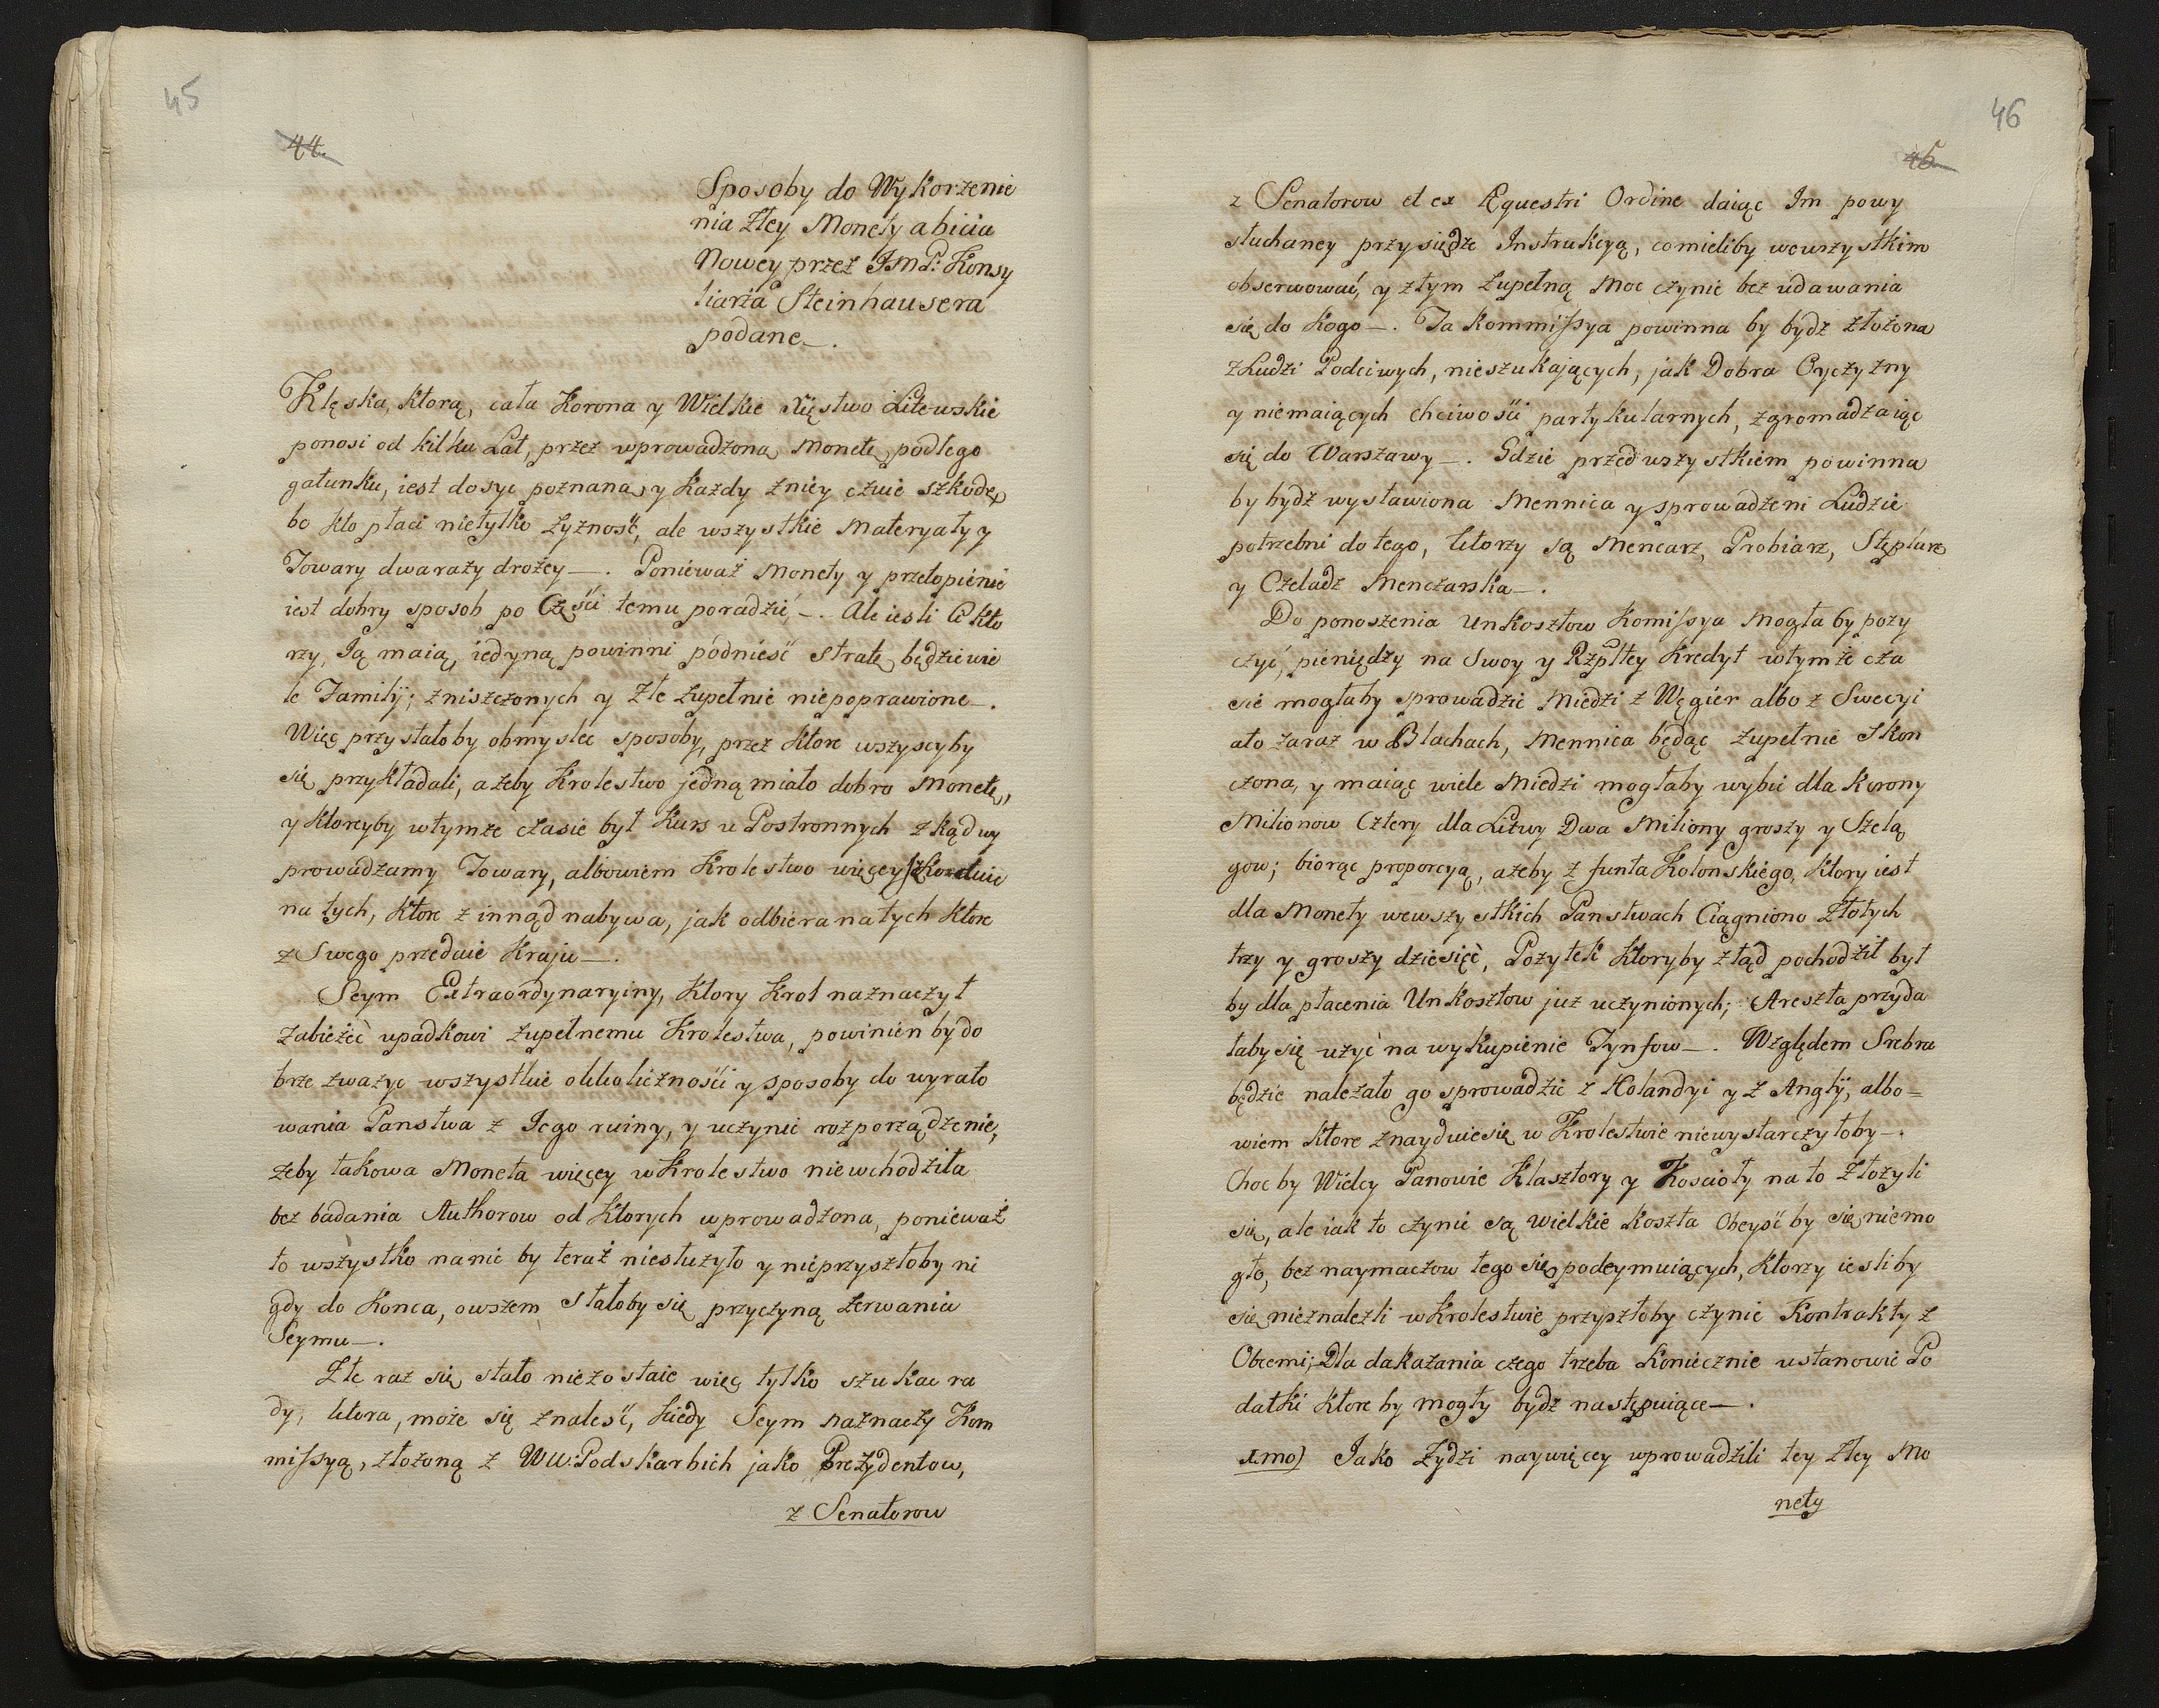 45
44.
Sposoby do Wykorzenie
nia złey Monety a bicia
Nowey przez JMP: Konsy
liarza Steinhausera
podane—.
Klęska, ktorą, cała Korona y Wielkie Xięstwo Litewskie
ponosi od kilku Lat, przez wprowadzoną Monetę podłego
gatunku, iest dosyc poznana, y Kazdy zniey czuie szkodę,
bo kto płaci nietylko zyznosć, ale wszystkie Materyaty y
Towary dwarazy drozey—. Ponieważ Monety y przetopienie
iest dobry sposob po Częsci temu poradzić—. Ale iesli Ci kto
rzy, Ją maią, iedyną powinni podniesć stratę będziewie
le Familÿ; zniszczonych y Złe zupełnie niepoprawione—.
Więc przystałoby obmyslec sposoby, przez ktore wszyscyby
się przykładali, azeby Krolestwo jedną miało dobra Monetę,
y ktoreyby wtymze czasie był Kurs u Postronnych zkąd wy
prowadzamy Towary, albowiem Krolestwo więcey szkoduie
na tych, ktore z innąd nabywa, jak odbiera natych ktore
z Swego przeduie Kraju—.
Seym Extraordynaryiny, ktory Krol naznaczył
zabieżeć upadkowi zupełnemu Krolestwa, powinien by do
brze zwazyc wszystkie okkolicznosci y sposoby do wyrato
wania Panstwa z Jego ruiny, y uczynic rozporządzenie,
żeby takowa Moneta więcey w Krolestwo niewchodziła
bez badania Authorow od ktorych wprowadzona, ponieważ
to wszystko nanic by teraz niesłużyło y nieprzyszłoby ni
gdy do Konca, owszem stałoby się przyczyną zerwania
Seymu—.
Złe raz się stało niezostaie więc tylko szukac ra
dy, ktora, może się znalesć, kiedy Seym naznaczy Kom
missyą, złożoną z WW. Podskarbich jako Prezydentow,
z Senatorow
46
45
z Senatorow et ex Æquestri Ordine daiąc Im powy
słuchaney przysiędze Instrukcyą, comieliby wewszystkim
obserwować, y ztym zupełną Moc czynic bez udawania
się do Kogo—. Ta Kommissya powinna by bydz złożona
z Ludzi Podciwych, nieszukających, jak Dobra Oyczyzny
y niemaiących chciwosci partykularnych, zgromadzaiąc
się do Warszawy—. Gdzie przedwszystkiem powinna
by bydz wystawiona Mennica y sprowadzeni Ludzie
potrzebni do tego, ktorzy są Mencarz, Probiarz, Stęplarz
y Czeladz Menczarska—.
Do ponoszenia Unkosztow Komissya Mogła by pozy
czyć, pieniędzy na Swoy y Rzpltey Kredyt wtymże cza
sie mogłaby sprowadzic Miedzi z Węgier albo z Swecyi
ato zaraz w Blachach, Mennica będąc zupełnie Skon
czona, y maiąc wiele Miedzi mogłaby wybic dla Korony
Milionow Cztery dla Litwy Dwa Miliony groszy y Szelą
gow; biorąc proporcyą, azeby z funta Kolonskiego, ktory iest
dla Monety wewszystkich Panstwach Ciągniono Złotych
trzy y groszy dziesięć, Pozytek ktoryby ztąd pochodził był
by dla płacenia Unkosztow juz uczynionych; Areszta przyda
łaby się uzyć na wykupienie Tynfow—. Względem Srebra
będzie nalezało go sprowadzic z Holandyi y z Anglÿ, albo=
wiem ktore znayduiesię w Krolestwie niewystarczyłoby—.
Choc by Wielcy Panowie Klasztory y Koscioły nato złozyli
się, ale iak to czynic są wielkie Koszta Obeysć by się niemo
gło, bez naymaczow tego się podeymuiących, ktorzy iesliby
się nieznalezli w Krolestwie przyszłoby czynic Kontrakty z
Obcemi; Dla dakazania czego trzeba koniecznie ustanowic Po
datki ktore by mogły bydz następuiące—.
1mo) Jako Zydzi naywięcey wprowadzili tey złey Mo
nety